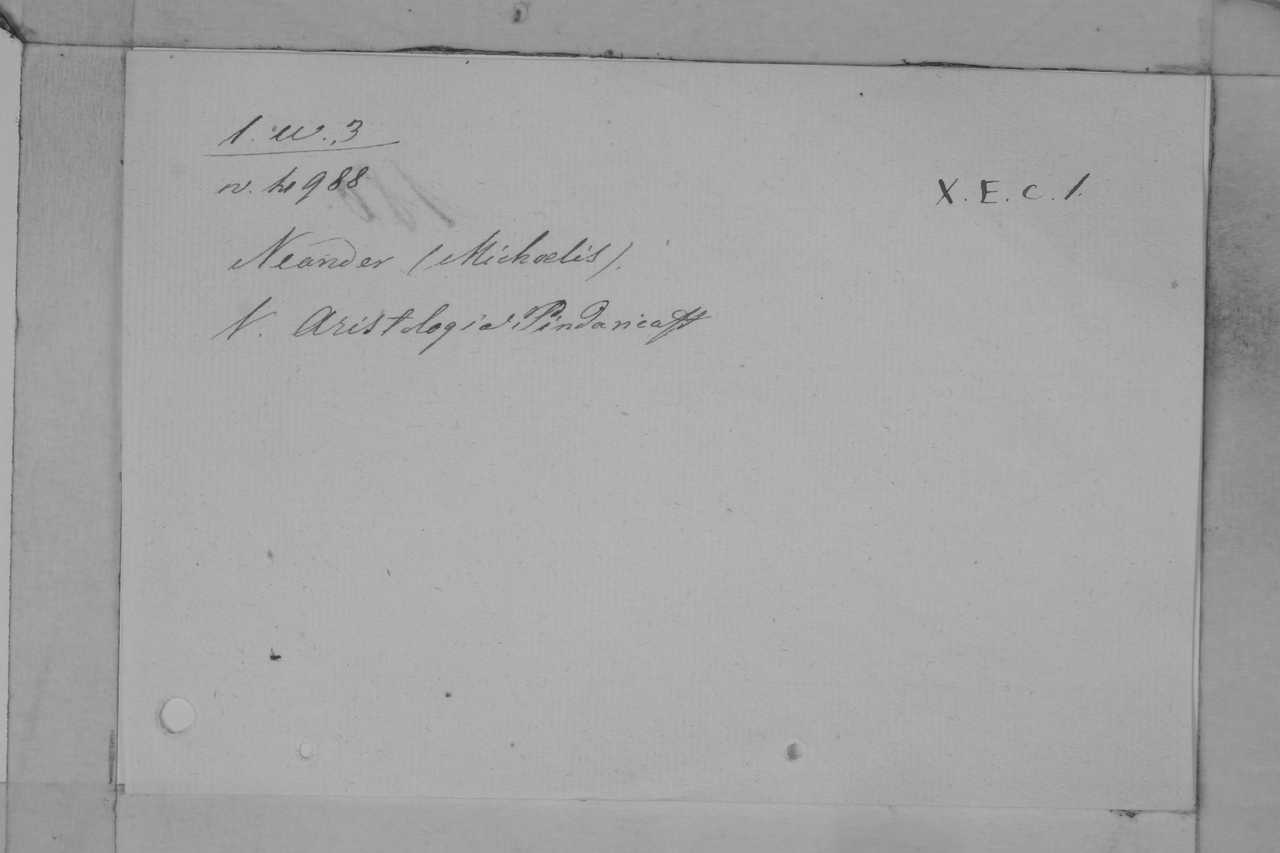 1. w. 3
n. 4988
X. E. c. 1.
Neander (Michaelis).
V. Aristologia Pindarica